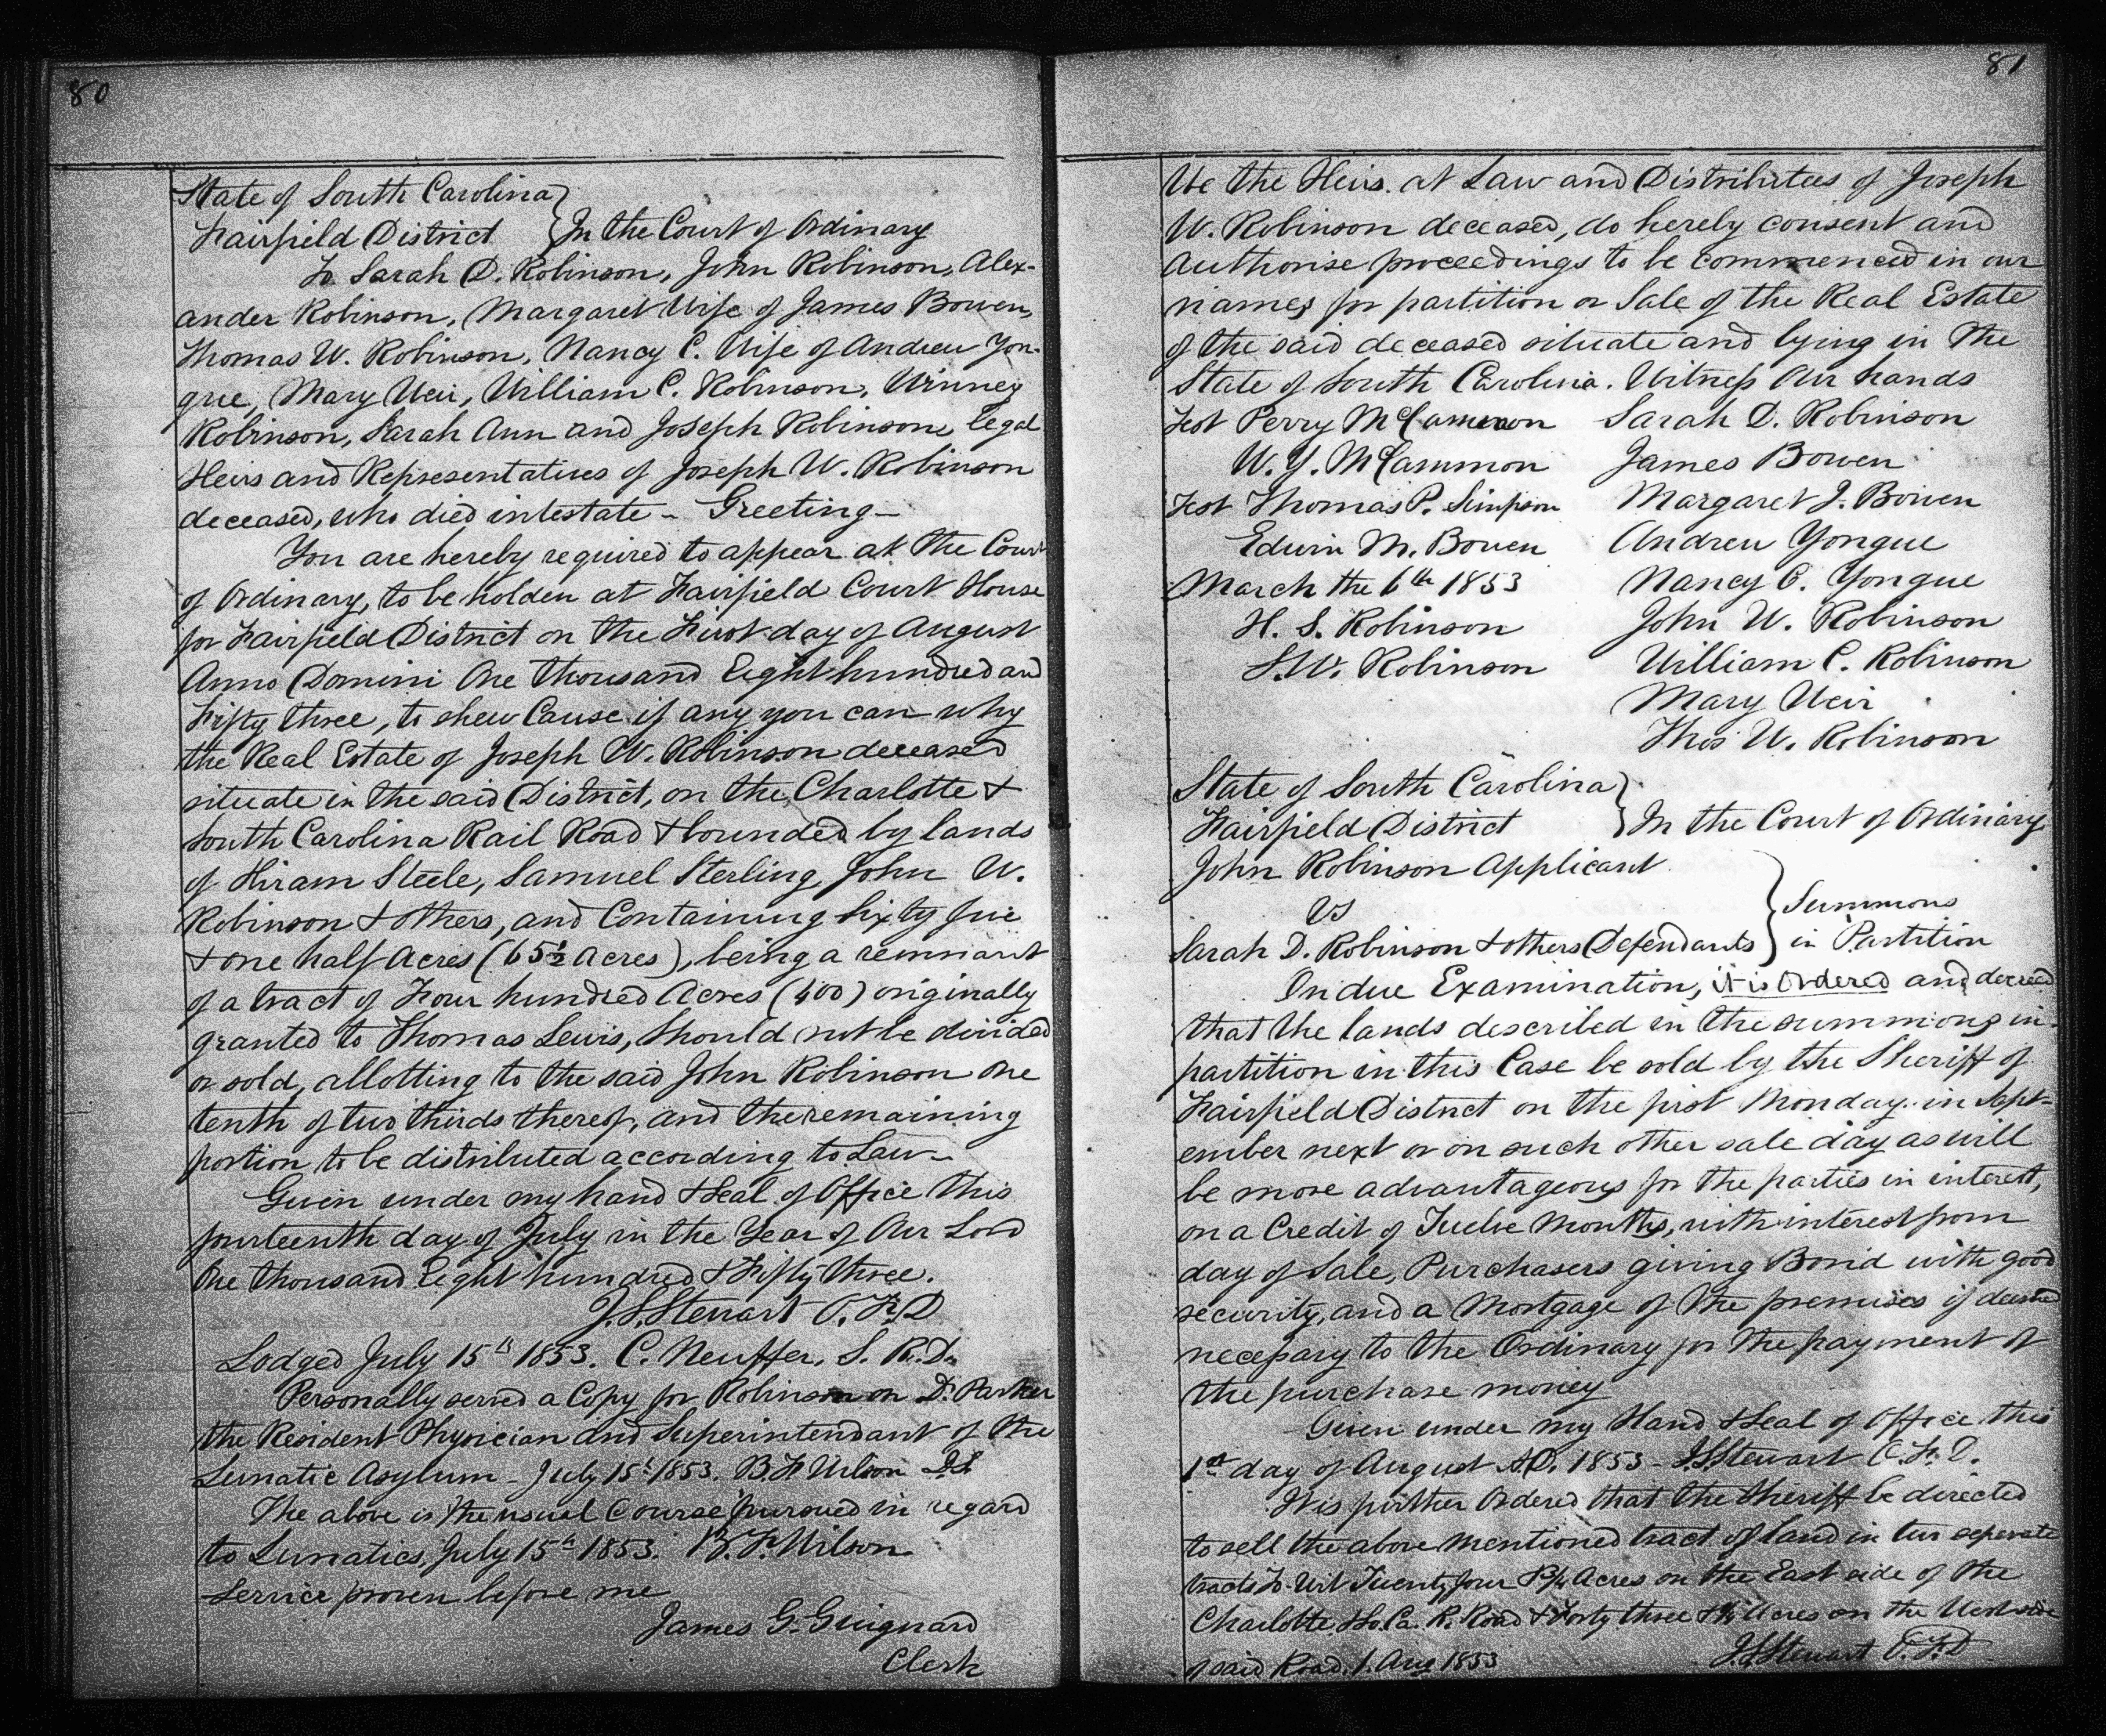 80
State of South Carolina }
Fairfield District } In the Court of Ordinary
To Sarah D. Robinson, John Robinson, Alex-
ander Robinson, Margaret Wife of James Bowen,
Thomas W. Robinson, Nancy C. Wife of Andrew Yon-
gue, Mary Weir, William C. Robinson, Winney
Robinson, Sarah Ann and Joseph Robinson, legal
Heirs and Representatives of Joseph W. Robinson
deceased, who died intestate - Greeting -
You are hereby required to appear at the Court
of Ordinary, to be holden at Fairfield Court House
for Fairfield District on the First day of August
Anno Domini One thousand Eight hundred and
Fifty three, to shew Cause if any you can why
the Real Estate of Joseph W. Robinson deceased
situate in the said District, on the Charlotte &
South Carolina Rail Road & bounded by lands
of Hiram Steele, Samuel Sterling, John W.
Robinson & others, and Containing Sixty five
& one half Acres (65½ Acres), being a remnant
of a tract of Four hundred Acres (400) originally
granted to Thomas Lewis, Should not be divided
or sold, allotting to the said John Robinson one
tenth of two thirds thereof, and the remaining
portion to be distributed according to Law -
Given under my hand & Seal of Office this
fourteenth day of July in the Year of Our Lord
One thousand Eight hundred & Fifty three.
J. S. Stewart O. F. D
Lodged July 15th 1853. C. Neuffer, S. R. D.
Personally served a Copy for Robinson on Dr. Parker
the Resident Physician and Superintendant of the
Lunatic Asylum - July 15t 1853. B F Wilson D.S.
The above is the usual Course pursued in regard
to Lunatics, July 15th 1853. B. F. Wilson
Service proven before me
James G. Guignard
Clerk
81
We the Heirs at Law and Distributees of Joseph
W. Robinson deceased, do hereby consent and
Authorise proceedings to be commenced in our
names for partition or Sale of the Real Estate
of the said deceased situate and lying in The
State of South Carolina. Witness Our hands
Test Perry McCammon Sarah D. Robinson
W. Y. McCammon James Bowen
Test Thomas P. Simpson Margaret J. Bowen
Edwin M. Bowen Andrew Yongue
March the 6th 1853 Nancy C. Yongue
H. S. Robinson John W. Robinson
S. W. Robinson William C. Robinson
Mary Weir
Thos W. Robinson
State of South Carolina }
Fairfield District } In the Court of Ordinary
John Robinson Applicant
vs } Summons
Sarah D. Robinson & others Defendants } in Partition
On due Examination, it is Ordered and decreed
that the lands described in the summons in
partition in this Case be sold by the Sheriff of
Fairfield District on the first Monday in Sept-
ember next or on such other sale day as will
be more advantageous for the parties in interest,
on a Credit of Twelve Months, with interest from
day of Sale, Purchasers giving Bond with good
security, and a Mortgage of the premises if deemed
necessary to the Ordinary for the payment of
the purchase money
Given under my Hand & Seal of Office this
1st day of August A.D. 1853 - J. S. Stewart O. F. D.
It is further Ordered that the Sheriff be directed
to sell the above mentioned tract of land in two seperate
tracts To-Wit Twenty four Acres on the East side of the
Charlotte & So. Ca. R. Road & Forty three & Acres on the West side
of said Road. 1. Aug 1853 J. S. Stewart O. F. D.